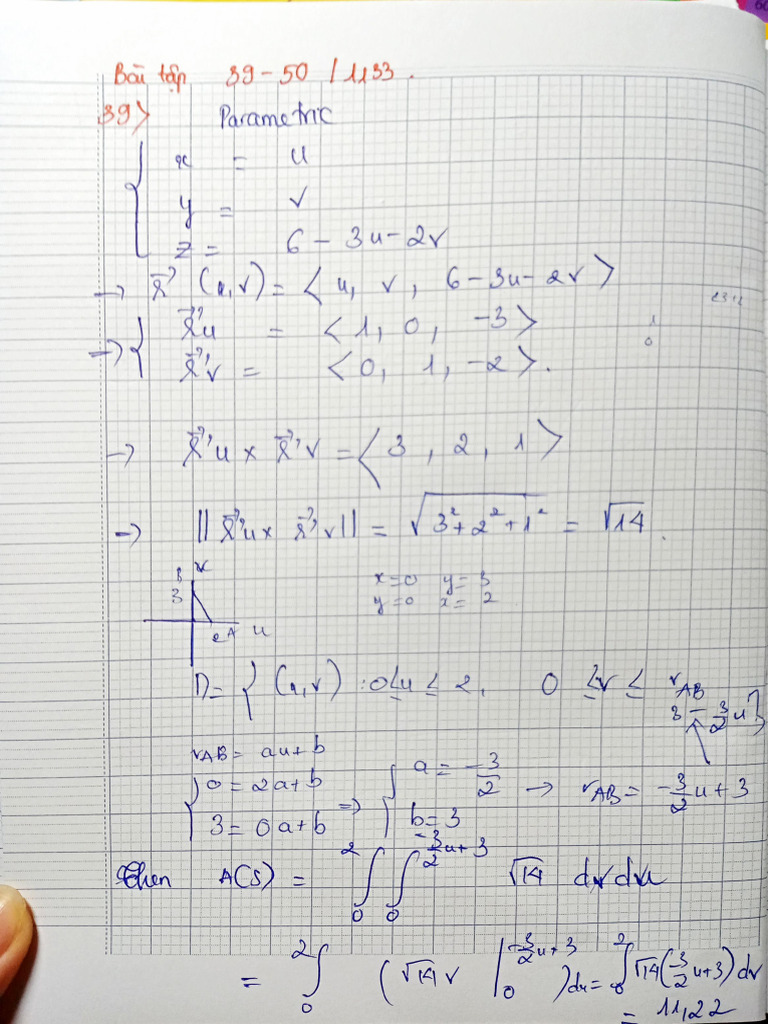 Bài tập 39-50 / 1133.
39> Parametric
x = u
y = v
z = 6 - 3u - 2v
→ r⃗ (u,v) = < u, v, 6-3u-2v >
→ { r⃗u = < 1, 0, -3 >
r⃗v = < 0, 1, -2 >.
→ r⃗u × r⃗v = < 3, 2, 1 >
→ || r⃗u × r⃗v || = √(3² + 2² + 1²) = √14.
B v
3
2 A u
x=0 y=3
y=0 x=2
D = { (u,v) : 0 ≤ u ≤ 2, 0 ≤ v ≤ vAB
3 - 3/2 u }
vAB = au+b
{ 0 = 2a+b
3 = 0a+b
⇒ { a = -3/2
b = 3
→ vAB = -3/2 u + 3
Then A(S) = ∫₀² ∫₀^(-3/2 u + 3) √14 dv du
= ∫₀² ( √14 v |₀^(-3/2 u + 3) ) du = ∫₀² √14 (-3/2 u + 3) dv
= 11,22